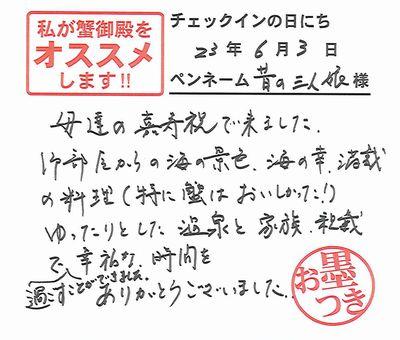 私が蟹御殿を
オススメ
します!!
チェックインの日にち
23年6月3日
ペンネーム 昔の三人娘 様
母達の寿祝で来ました。
お部屋からの海の景色、海の幸、満載
の料理(特に蟹はおいしかった!)
ゆったりとした温泉と家族、親戚
で幸せな時間を
過すことができました。
ありがとうございました。
お墨つき